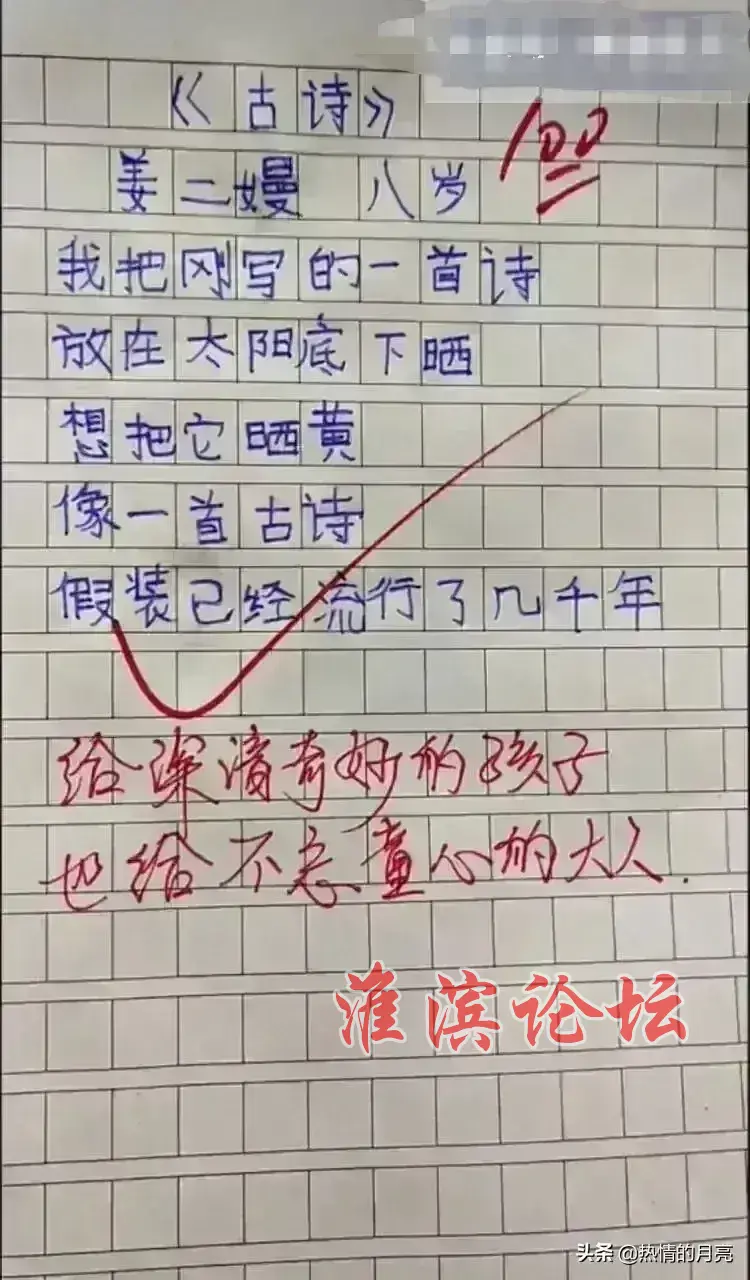 《古诗》
100
姜二嫚 八岁
我把刚写的一首诗
放在太阳底下晒
想把它晒黄
像一首古诗
假装已经流行了几千年
给深谙奇妙的孩子
也给不忘童心的大人.
淮滨论坛
头条 @热情的月亮